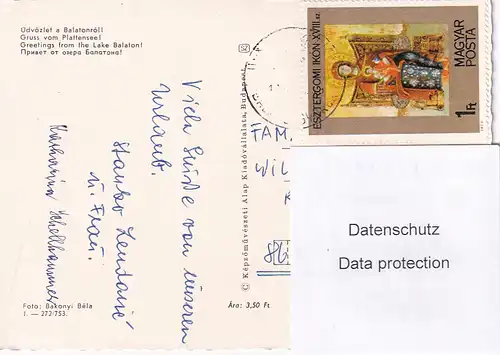 Üdvözlet a Balatonról!
Gruss vom Plattensee!
Greetings from the Lake Balaton!
Привет от озера Балатона!
52
Viele Grüße von unseren
Urlaub.
u. Frau.
Katharina
Foto: Bakonyi Béla
I. — 272/753.
© Képzőművészeti Alap Kiadóvállalata, Budapest
Ára: 3,50 Ft
ESZTERGOMI IKON·XVIII.sz.
MAGYAR
POSTA
1Ft
FAM.
Datenschutz
Data protection